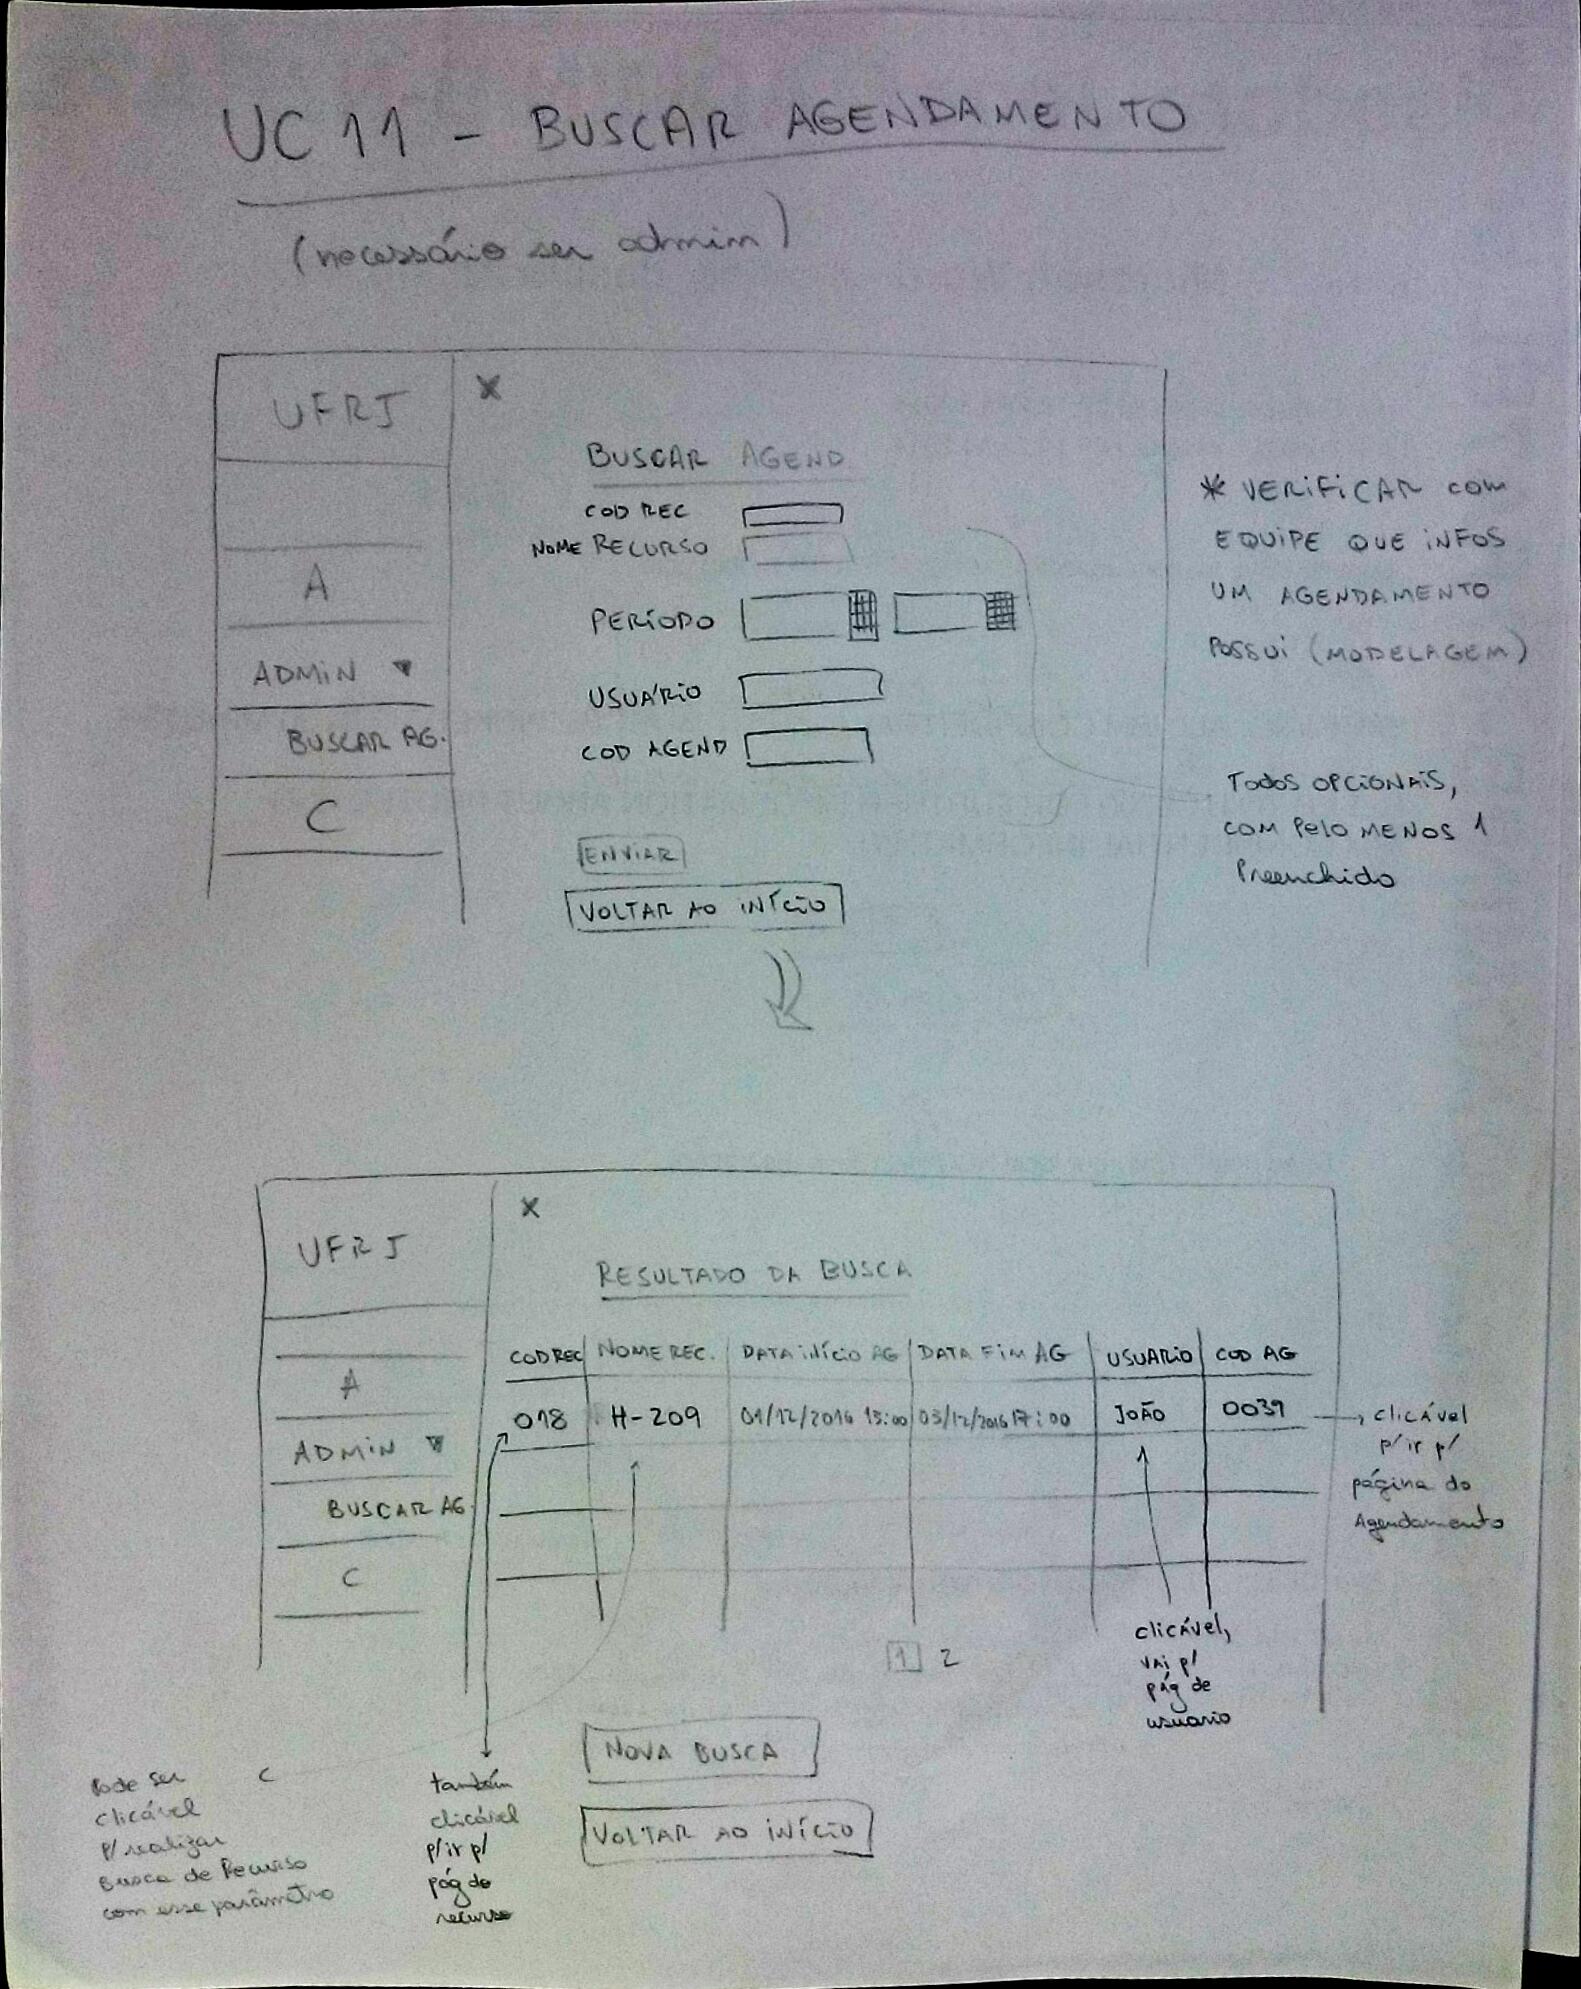 UC 11 - BUSCAR AGENDAMENTO
(necessário ser admim)
UFRJ
X
A
ADMIN
BUSCAR AG.
C
BUSCAR AGEND
COD REC
NOME RECURSO
PERÍODO
USUÁRIO
COD AGEND
ENVIAR
VOLTAR AO INÍCIO
* VERIFICAR COM
EQUIPE QUE INFOS
UM AGENDAMENTO
POSSUI (MODELAGEM)
TODOS OPCIONAIS,
COM PELO MENOS 1
Preenchido
UFRJ
X
A
ADMIN
BUSCAR AG.
C
RESULTADO DA BUSCA
COD REC NOME REC. DATA INÍCIO AG DATA FIM AG USUARIO COD AG
018 H-209 01/12/2016 15:00 03/12/2016 17:00 JOÃO 0039
clicável
p/ ir p/
página do
Agendamento
clicável,
vai p/
pág de
usuario
1 2
NOVA BUSCA
VOLTAR AO INÍCIO
Pode ser
clicável
p/ realizar
Busca de Recurso
com esse parâmetro
também
clicável
p/ ir p/
pág do
recurso